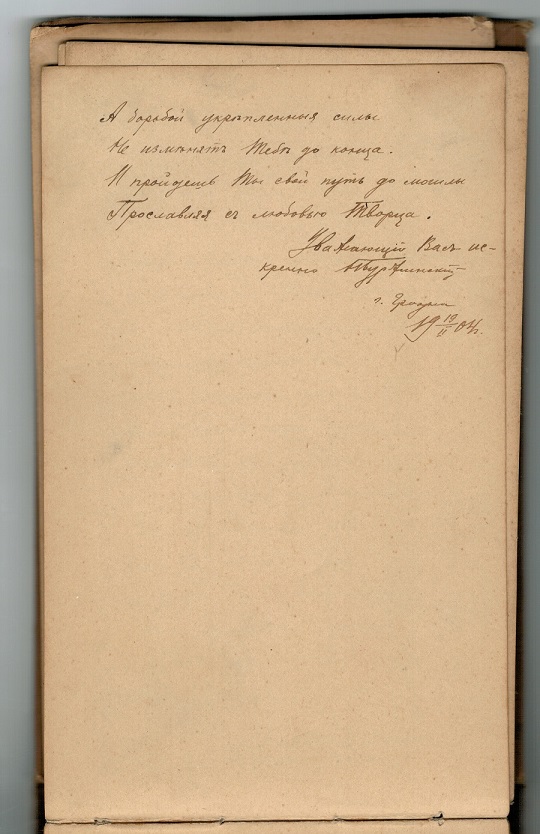 А борьбой укрѣпленныя силы
Не измѣнятъ Тебѣ до конца.
И пройдешь Ты свой путь до могилы
Прославляя съ любовью Творца.
Уважающій Васъ ис-
кренно
г. Гродно
19 19/II 04 г.